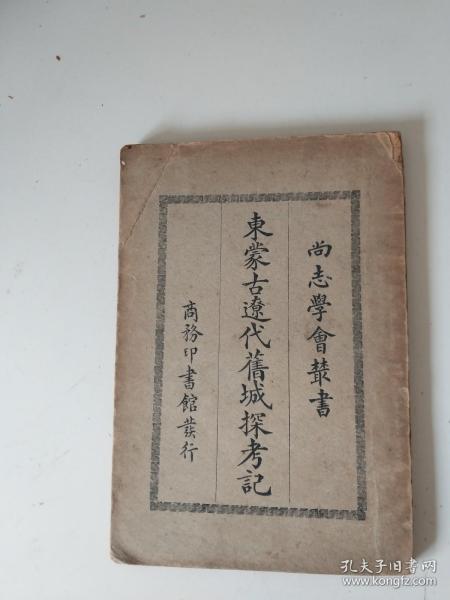 尚志學會叢書
東蒙古遼代舊城探考記
商務印書館發行
孔夫子旧书网
www.kongfz.com